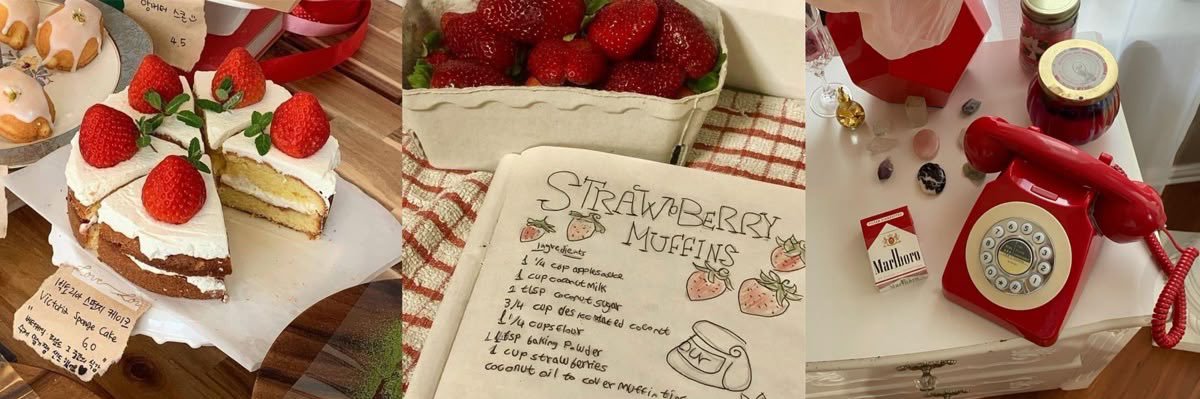 앙버터 스콘
4.5
빅토리아 스펀지 케이크
"Victoria Sponge Cake"
6.0
STRAWBERRY
MUFFINS
Ingredients
1 1/4 cup applesauce
1 cup coconut milk
1 tbsp coconut sugar
3/4 cup desiccated coconut
1 1/4 cups flour
1 tbsp baking powder
1 cup strawberries
coconut oil to cover muffin tins
our
Marlboro